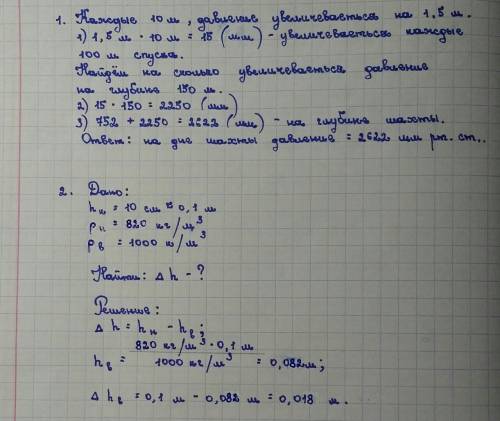 1. Каждые 10 м, давление увеличеваеться на 1,5 м.
1) 1,5 м · 10 м = 15 (мм) - увеличеваеться каждые
100 м спуска.
Найдём на сколько увеличеваеться давление
на глубине 150 м.
2) 15 · 150 = 2250 (мм)
3) 752 + 2250 = 2622 (мм) - на глубине шахты.
Ответ: на дне шахты давление = 2622 мм рт. ст..
2. Дано:
hн = 10 см = 0,1 м
ρн = 820 кг/м³
ρв = 1000 к/м³
Найти: Δh - ?
Решение:
Δh = hн - hв;
hв = 820 кг/м³ · 0,1 м / 1000 кг/м³ = 0,082м;
Δhв = 0,1 м - 0,082 м = 0,018 м.